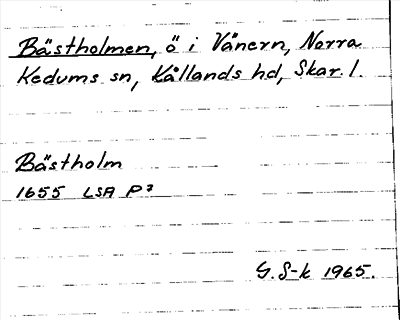 Bästholmen, ö i Vänern, Norra
Kedums sn, Kållands hd, Skar. l.
Bästholm
1655 LSA P²
G. S-k 1965.